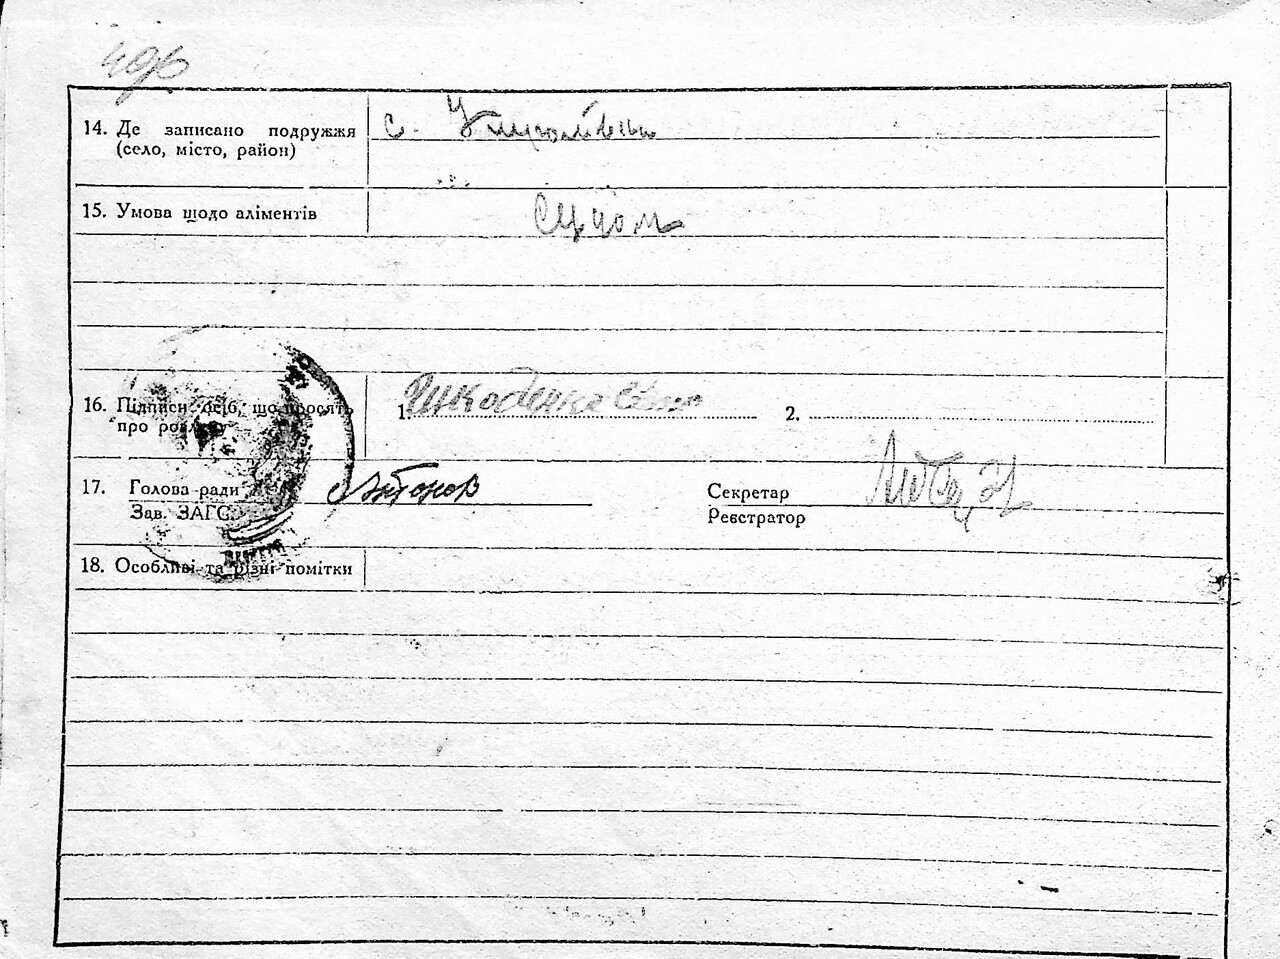 14. Де записано подружжя
(село, місто, район)
с.
15. Умова щодо аліментів
16. Підписи осіб, що просять
про розлуку
1. Шкоденко 2.
17. Голова ради Антонов Секретар
Зав. ЗАГС Реєстратор
18. Особливі та різні помітки